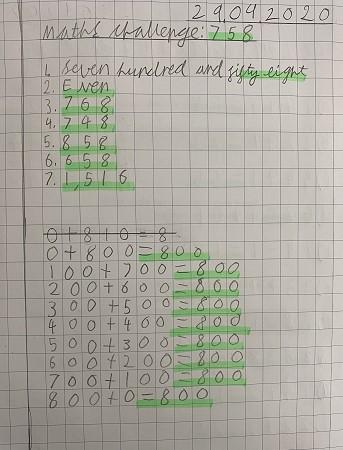 29042020
Maths challenge: 758
1. Seven hundred and fifty eight
2. Even
3. 768
4. 748
5. 858
6. 658
7. 1,516
0+8+0=8
0+800=800
100+700=800
200+600=800
300+500=800
400+400=800
500+300=800
600+200=800
700+100=800
800+0=800